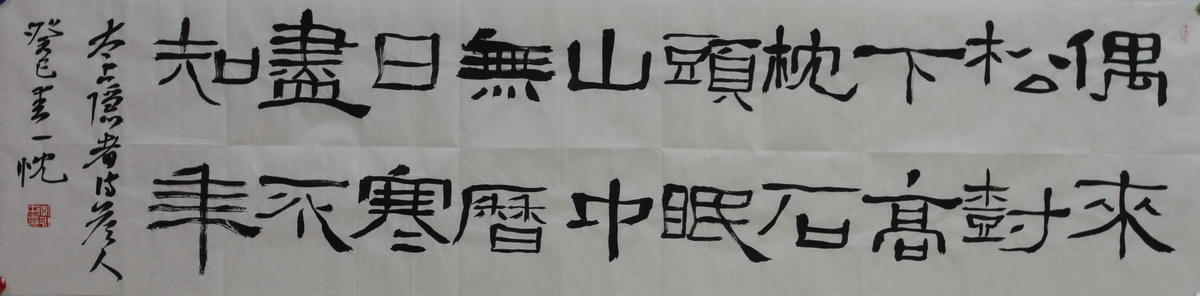 偶來
松樹
下高
枕石
頭眠
山中
無曆
日寒
盡不
知年
太上隱者詩答人
癸巳春一忱